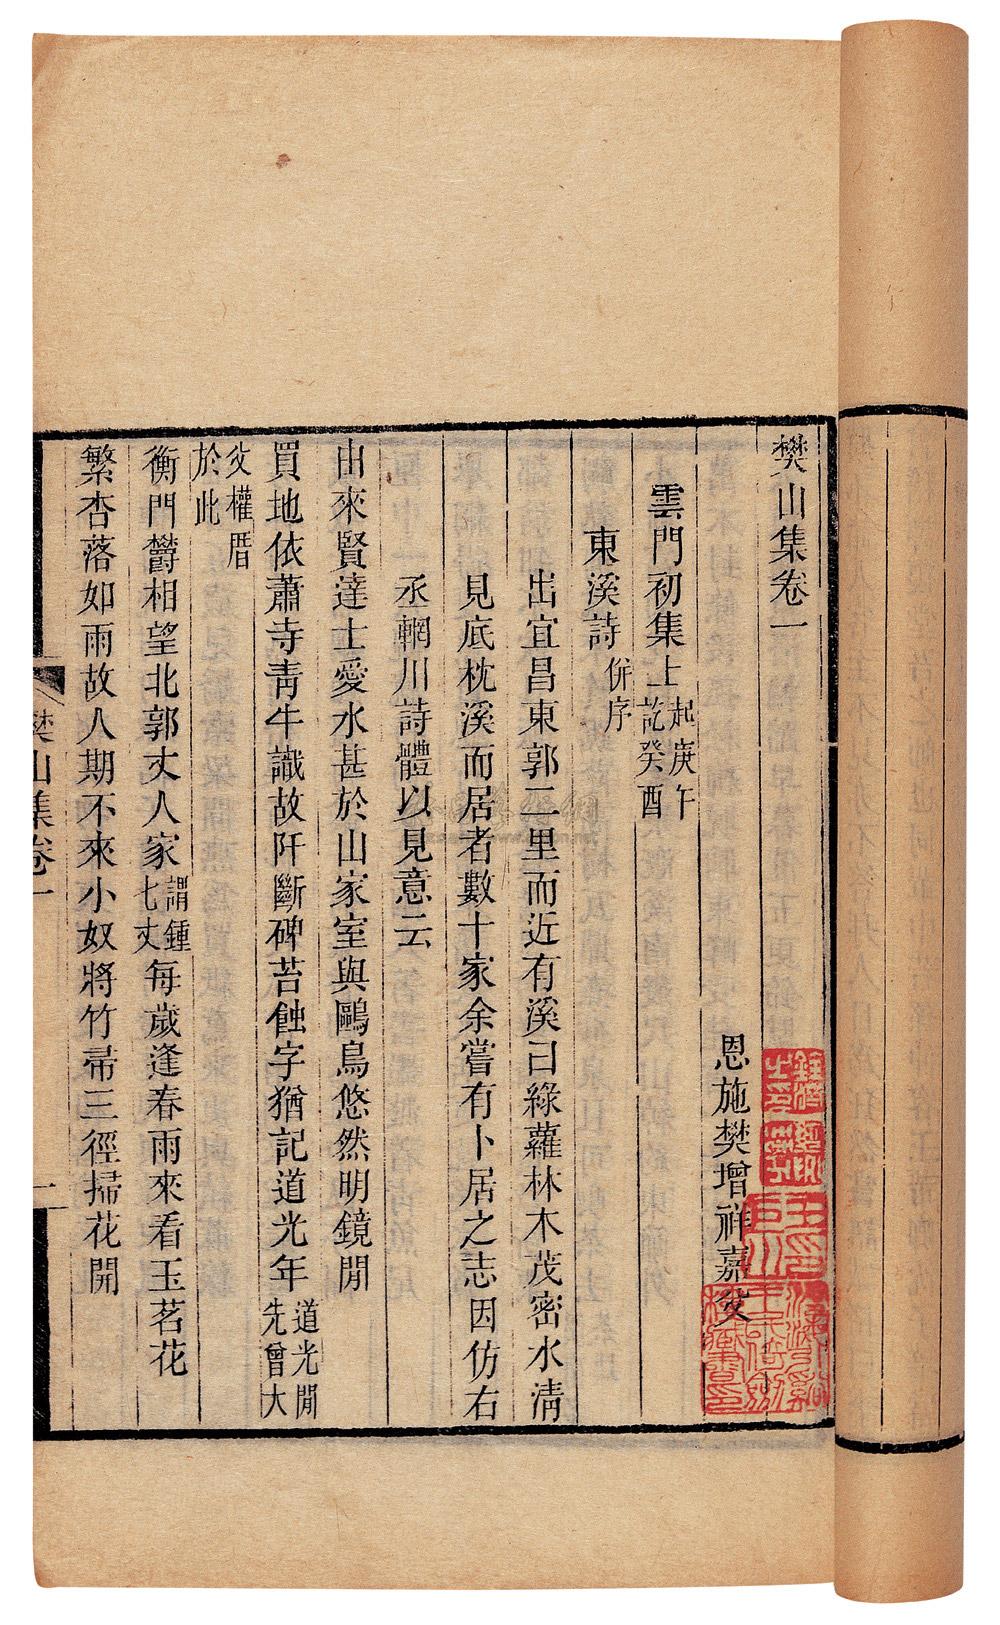 樊山集卷一
恩施樊增祥嘉父
雲門初集上起庚午訖癸酉
東溪詩併序
出宜昌東郭二里而近有溪曰綠蘿林木茂密水清
見底枕溪而居者數十家余嘗有卜居之志因仿右
丞輞川詩體以見意云
由來賢達士愛水甚於山家室與鷗鳥悠然明鏡閒
買地依蕭寺青牛識故阡斷碑苔蝕字猶記道光年道光閒先曾大
父權厝於此
衡門鬱相望北郭丈人家謂鍾七丈每歲逢春雨來看玉茗花
繁杏落如雨故人期不來小奴將竹帚三徑掃花開
樊山集卷一
一